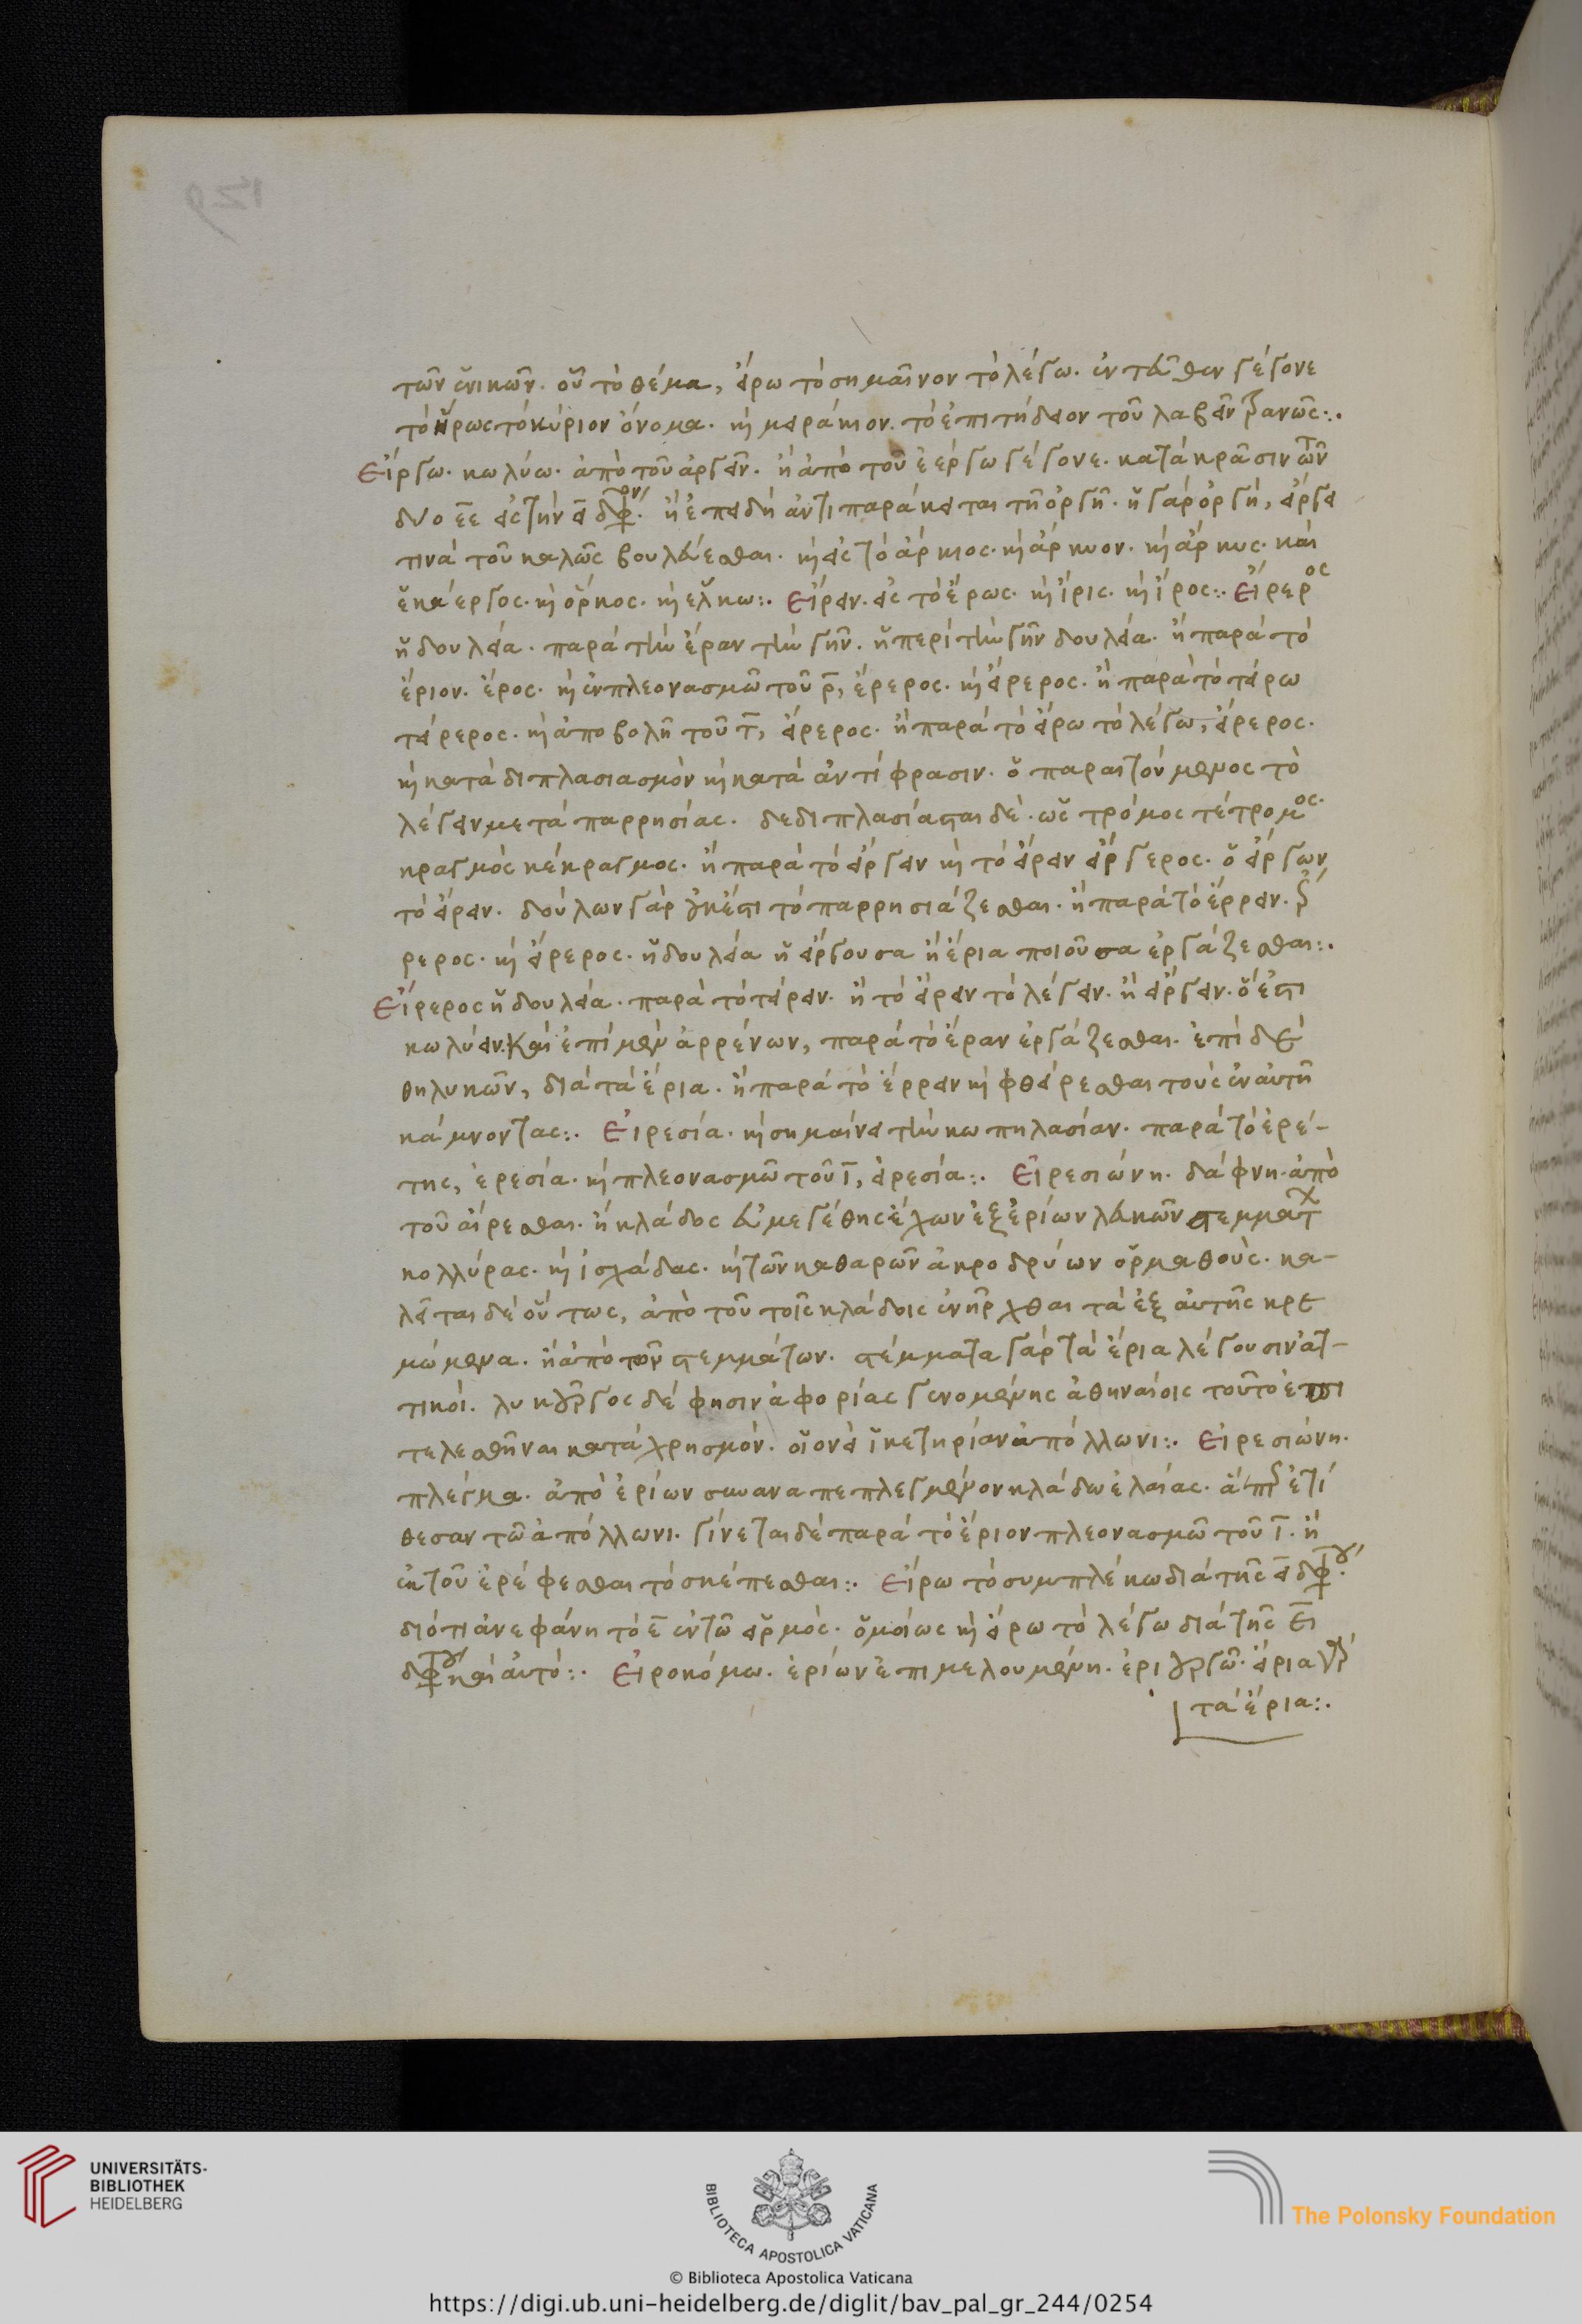 τῶν ἑνικῶν. οὗ τὸ θέμα, εἴρω τὸ σημαῖνον τὸ λέγω. ἐντεῦθεν γέγονε
τὸ ἥρως τὸ κύριον ὄνομα. τὸ ἐπιτήδειον τοῦ λαβεῖν
Εἴργω. κωλύω. ἀπὸ τοῦ εἰργεῖν. ἢ ἀπὸ τοῦ ἐέργω γέγονε. κατὰ κρᾶσιν τῶν
δύο εε εἰς τὴν ει δίφθογγον. ἢ ἐπειδὴ ἀντιπαράκειται τῇ ὀργῇ. ἡ γὰρ ὀργή, εἴργει
τινὰ τοῦ καλῶς βουλεύεσθαι. καὶ εἰς τὸ ἄρκιος. καὶ ἄρκυον. καὶ ἄρκυς. καὶ
ἑκάεργος. καὶ ὅρκος. καὶ ἕλκω:. Εἴρειν. εἰς τὸ ἔρως. καὶ ἶρις. καὶ ἶρος:. Εἴρερος
ἡ δουλεία. παρὰ τὴν ἔραν τὴν γῆν. ἡ περὶ τὴν γῆν δουλεία. ἢ παρὰ τὸ
ἔριον. ἔρος. καὶ ἐν πλεονασμῶ τοῦ ρ, ἔρερος. καὶ εἴρερος. ἢ παρὰ τὸ τείρω
τείρερος. καὶ ἀποβολῇ τοῦ τ, εἴρερος. ἢ παρὰ τὸ εἴρω τὸ λέγω, εἴρερος.
καὶ κατὰ διπλασιασμὸν καὶ κατὰ ἀντίφρασιν. ὁ παραιτούμενος τὸ
λέγειν μετὰ παρρησίας. δεδιπλασίασται δὲ. ὡς τρόμος τέτρομος.
κραγμὸς κέκραγμος. ἢ παρὰ τὸ εἴργειν καὶ τὸ εἴρειν εἴργερος. ὁ εἴργων
τὸ εἴρειν. δούλων γὰρ οὐκ ἔστι τὸ παρρησιάζεσθαι. ἢ παρὰ τὸ ἔρρειν. ἔρ
ρερος. καὶ εἴρερος. ἡ δουλεία ἡ εἴργουσα ἢ ἔρια ποιοῦσα ἐργάζεσθαι:.
Εἴρερος ἡ δουλεία. παρὰ τὸ τείρειν. ἢ τὸ εἴρειν τὸ λέγειν. ἢ εἴργειν. ὅ ἐστι
κωλύειν. Καὶ ἐπὶ μὲν ἀρρένων, παρὰ τὸ ἔραν ἐργάζεσθαι. ἐπὶ δὲ
θηλυκῶν, διὰ τὰ ἔρια. ἢ παρὰ τὸ ἔρρειν καὶ φθείρεσθαι τοὺς ἐν αὐτῇ
κάμνοντας:. Εἰρεσία. καὶ σημαίνει τὴν κωπηλασίαν. παρὰ τὸ ἐρέ-
της, ἐρεσία. καὶ πλεονασμῶ τοῦ ι, εἰρεσία:. Εἰρεσιώνη. δάφνη. ἀπὸ
τοῦ αἴρεσθαι. ἢ κλάδος εὐμεγέθης ἔχων ἐξ ἐρίων λευκῶν στέμματα
κολλύρας. καὶ ἰσχάδας. καὶ τῶν καθαρῶν ἀκροδρύων ὁρμαθοὺς. κα-
λεῖται δὲ οὕτως, ἀπὸ τοῦ τοῖς κλάδοις ἐνῆρχθαι τὰ ἐξ αὐτῆς κρε
μώμενα. ἢ ἀπὸ τῶν στεμμάτων. στέμματα γὰρ τὰ ἔρια λέγουσιν ἀτ-
τικοί. λυκοῦργος δέ φησιν ἀφορίας γενομένης ἀθηναίοις τοῦτο ἐπι
τελεσθῆναι κατὰ χρησμόν. οἱονεὶ ἱκετηρίαν ἀπόλλωνι:. Εἰρεσιώνη.
πλέγμα. ἀπὸ ἐρίων συναναπεπλεγμένον κλάδω ἐλαίας. ἅπερ ἐτί
θεσαν τῶ ἀπόλλωνι. γίνεται δὲ παρὰ τὸ ἔριον πλεονασμῶ τοῦ ι. ἢ
ἐκ τοῦ ἐρέφεσθαι τὸ σκέπεσθαι:. Εἴρω τὸ συμπλέκω διὰ τῆς ει διφθόγγου.
διότι ἀνεφάνη τὸ ε ἐν τῶ εἱρμός. ὁμοίως καὶ εἴρω τὸ λέγω διὰ τῆς ει
διφθόγγου καὶ αὐτό:. Εἰροκόμω. ἐρίων ἐπιμελουμένη. ἐριουργῶ. εἴρια γὰρ
τὰ ἔρια:.
129
UNIVERSITÄTS-
BIBLIOTHEK
HEIDELBERG
BIBLIOTECA APOSTOLICA VATICANA
The Polonsky Foundation
© Biblioteca Apostolica Vaticana
https://digi.ub.uni-heidelberg.de/diglit/bav_pal_gr_244/0254